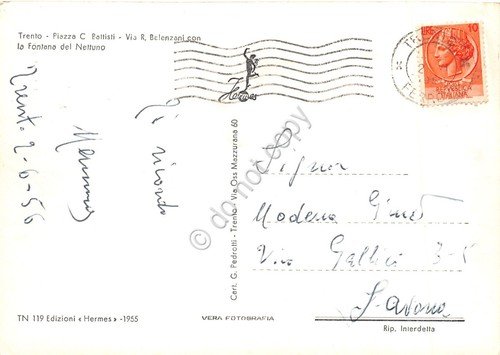 Trento - Piazza C. Battisti - Via R. Belenzani con
la Fontana del Nettuno
Trento 2-6-56
Vi ricordo
Hermes
LIRE 10
REPUBBLICA
ITALIANA
Cert. G. Pedrotti - Trento - Via Oss Mazzurana 60
do not copy
Sig.na
Modena
Via Gallico 3-5
Savona
TN 119 Edizioni « Hermes » -1955
VERA FOTOGRAFIA
Rip. Interdetta